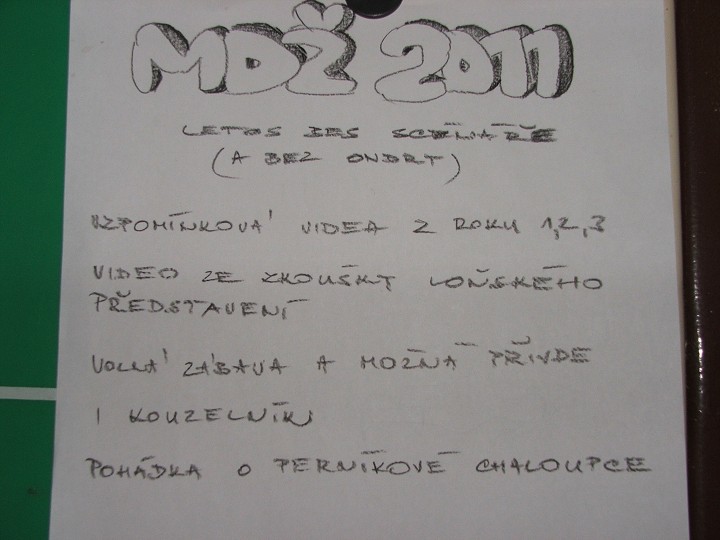 MDŽ 2011
LETOS BES SCÉNÁŘE
(A BEZ ONDRY)
VZPOMÍNKOVÁ VIDEA Z ROKU 1,2,3
VIDEO ZE ZKOUŠKY LOŇSKÉHO
PŘEDSTAVENÍ
VOLNÁ ZÁBAVA A MOŽNÁ PŘIVDE
I KOUZELNÍK
POHÁDKA O PERNÍKOVÉ CHALOUPCE